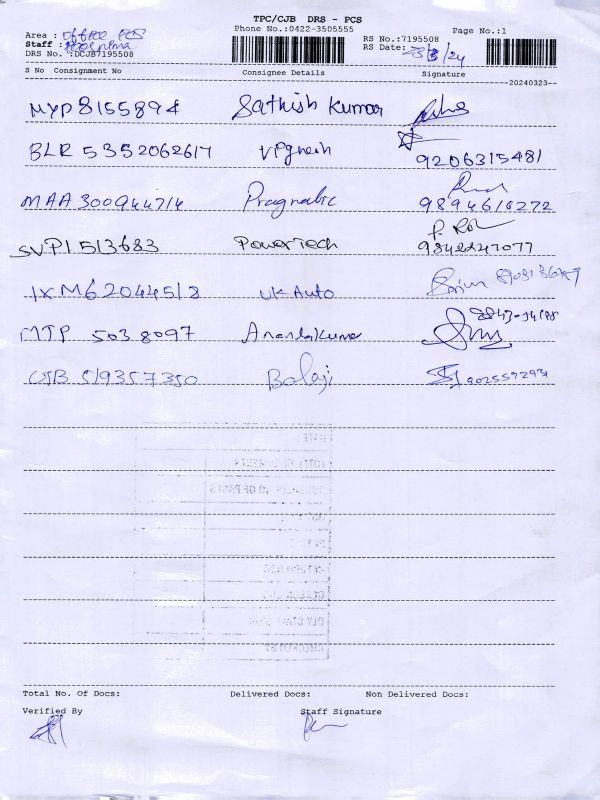 TPC/CJB DRS - PCS
Phone No.:0422-3505555
Page No.:1
Area : office PCS
RS No.:7195508
Staff :
RS Date: 23/3/24
DRS No. :DCJB7195508
S No Consignment No Consignee Details Signature
20240323
MYP 8155894 Sathish Kumar
BLR 5352062617 Vignesh 9206315481
MAA 300944714 Pragnatic 9894618272
SVP1513683 PowerTech 9842247077
IXM62044518 UK Auto
MTP 5038097 Anandakumar
CJB 519357350 Balaji
Total No. Of Docs: Delivered Docs: Non Delivered Docs:
Verified By Staff Signature